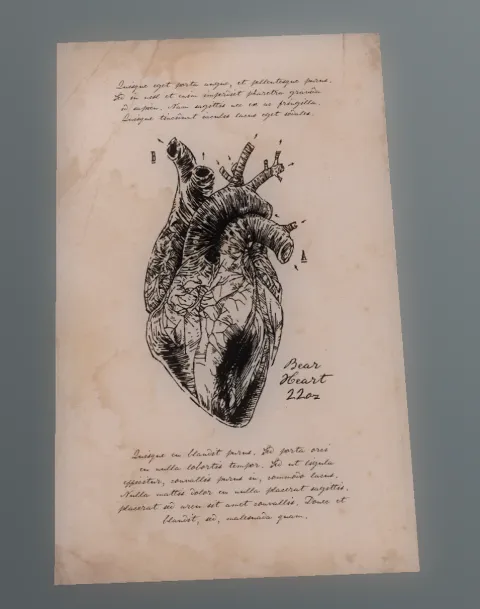 Quisque eget porta augue, et pellentesque purus.
Sed in nisl et enim imperdiet pharetra gravida
id sapien. Nam sagittis nec ex ac fringilla.
Quisque tincidunt iaculis lacus eget iaculis.
B
A
Bear
Heart
22oz
Quisque eu blandit purus. Sed porta orci
eu nulla lobortis tempor. Sed ut ligula
efficitur, convallis purus in, commodo lacus.
Nulla mattis dolor eu nulla placerat sagittis.
placerat sed arcu sit amet convallis. Donec et
blandit, sed, malesuada quam.